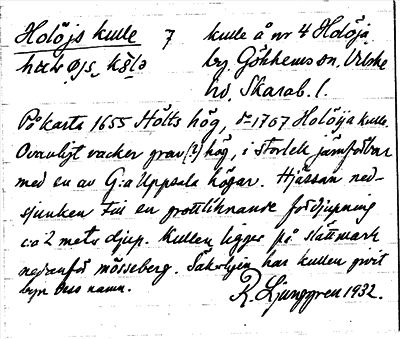 Holöjs kulle 7 kulle å nr 4 Holöja
by, Gökhems sn, Vilske
hd, Skarab. l.
På karta 1655 Hölts hög, d:o 1707 Holöija kulle.
Ovanligt vacker grav(?)hög, i storlek jämförbar
med en av G:a Uppsala högar. Hjässan ned-
sjunken till en grottliknande fördjupning
c:a 2 meter djup. Kullen ligger på slättmark
nedanför mösseberg. Säkerligen har kullen givit
byn dess namn.
R. Ljunggren 1932.